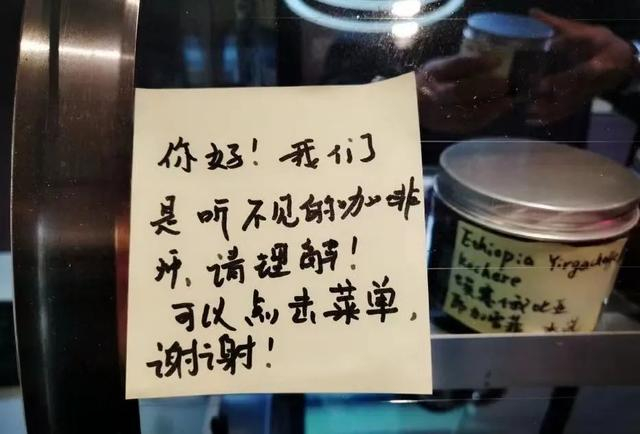 你好！我们
是听不见的咖啡
师，请理解！
可以点击菜单，
谢谢！
Ethiopia Yirgacheffe
Kochere
埃塞俄比亚
耶加雪菲